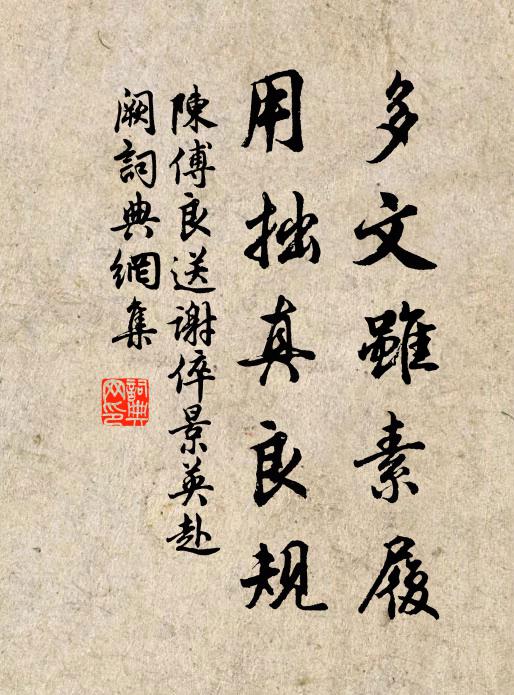 多文雖素履
用拙真良規
陳傅良送謝倅景英赴
闕詞典網集
詞典網印